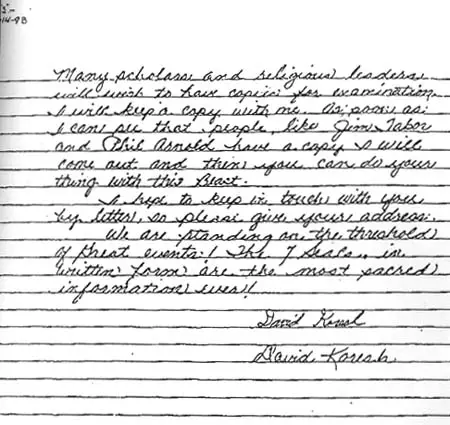 14-93
Many scholars and religious leaders
will wish to have copies for examination
I will keep a copy with me. As soon as
I can see that people, like Jim Tabor
and Phil Arnold have a copy I will
come out and then you can do your
thing with this Beast.
I hope to keep in touch with you
by letter, so please give your address.
We are standing on the threshold
of Great events! The 7 Seals, in
written form are the most sacred
information ever!
David Koresh
David Koresh